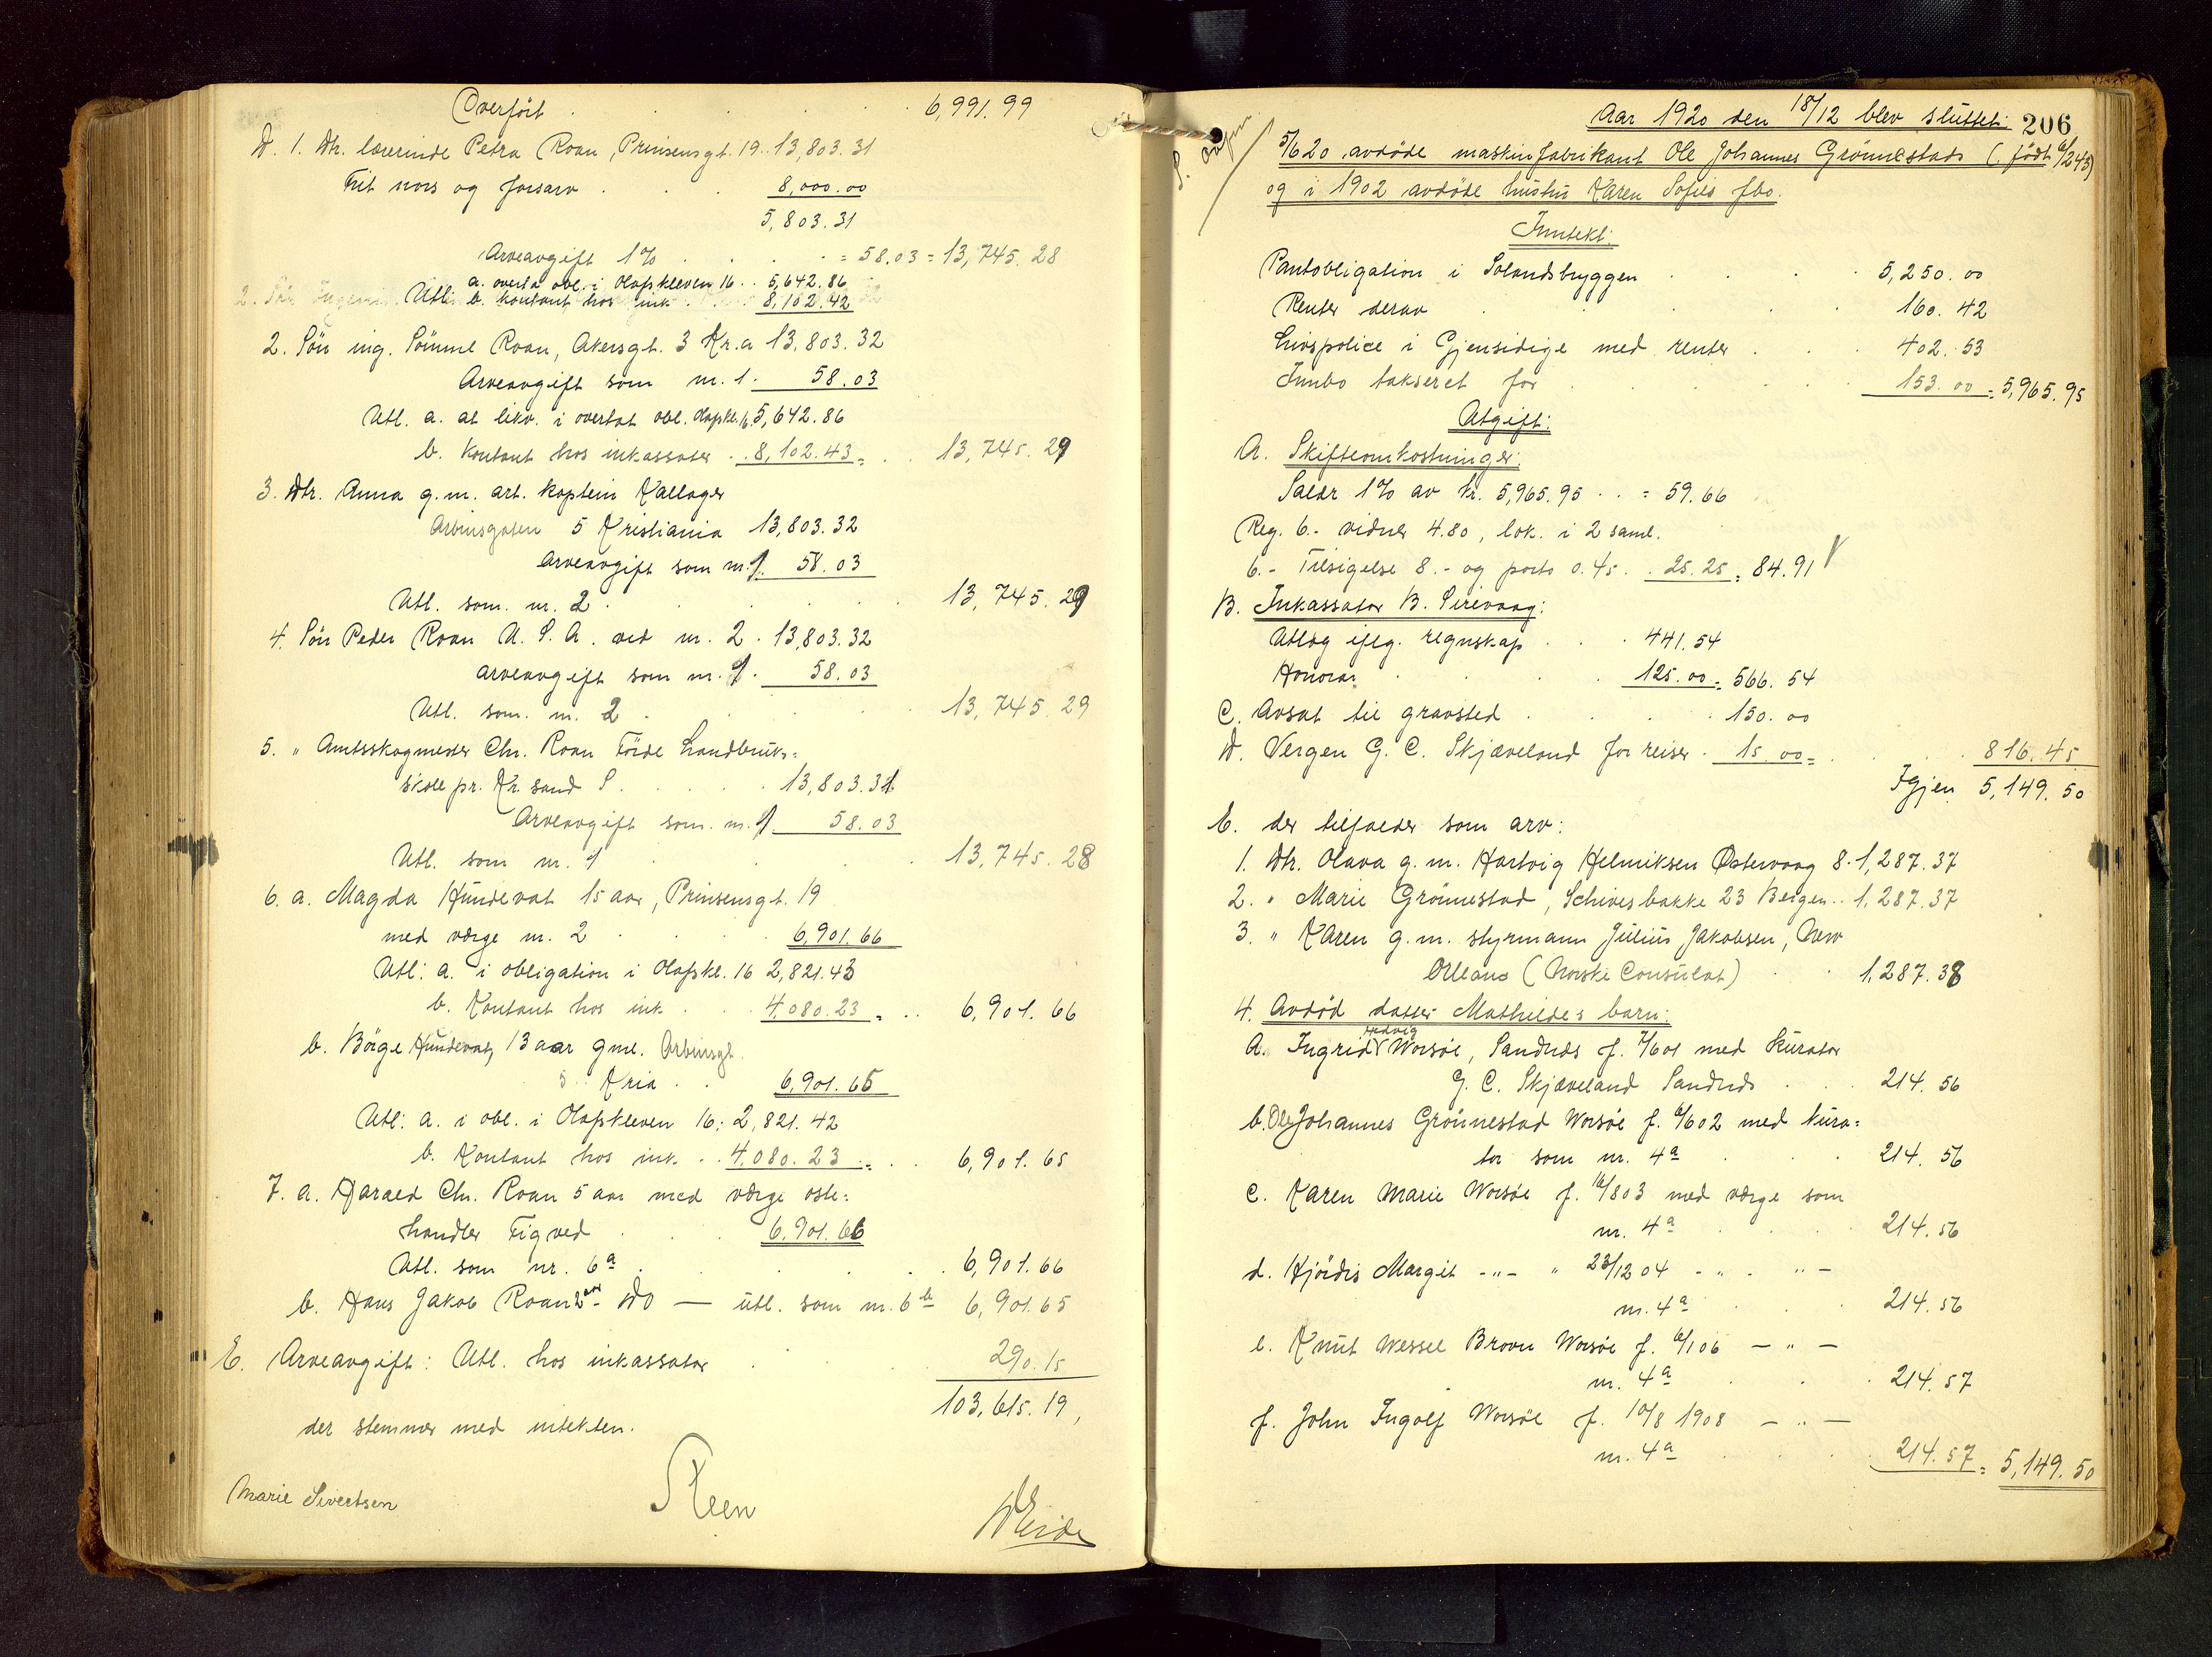 Overført . . . . . 6,991.99
D. 1. Dtr. lærerinde Petra Roan, Prinsensgt. 19 .. 13,803.31
Frit nors og forsarv . . . 8,000.00
5,803.31
Arveavgift 1% . . . . = 58.03 = 13,745.28
a. overta obl. i Olafskleven 16 .. 5,642.86
Utl: b. kontant hos ink . . 8,102.42
2. Søn ing. Sømme Roan, Akersgt. 3 Kr.a 13,803.32
Arveavgift som nr. 1. 58.03
Utl. a. at likv. i overtat obl. Olafskl. 16 5,642.86
b. Kontant hos inkassator .. 8,102.43 = . 13,745.29
3. Dtr. Anna g.m. art. kaptein Kallager
Arbinsgaten 5 Kristiania 13,803.32
Arveavgift som nr. 1. 58.03
Utl. som. nr. 2 . . . . 13,745.29
4. Søn Peder Roan U.S.A. ved nr. 2 . 13,803.32
Arveavgift som nr. 1. 58.03
Utl. som. nr. 2 . . . . 13,745.29
5. " Amtsskogmester Chr. Roan Førde Landbruks=
skole pr. Kr.sand S . . . . 13,803.31
Arveavgift som. nr. 1. 58.03
Utl. som nr. 1 . . . . 13,745.28
6. a. Magda Hundevat 15 aar, Prinsensgt. 19
med værge nr. 2 . . . 6,901.66
Utl: a. i obligation i Olafskl. 16 2,821.43
b. Kontant hos ink . . 4,080.23 = . . 6,901.66
b. Börge Hundevat, 13 aar gml. Arbinsgt.
5 Kria . . 6,901.65
Utl: a. i obl. i Olafskleven 16: 2,821.42
b. Kontant hos ink. . . 4,080.23 = . . 6,901.65
7. a. Harald Chr. Roan 5 aar med værge oste=
handler Tigved . . . 6,901.66
Utl. som nr. 6a . . . . 6,901.66
b. Hans Jakob Roan 2 aar - Do — utl. som nr. 6b 6,901.65
E. Arveavgift: Utl. hos inkassator . . . 290.15
103,615.19,
der stemmer med intekten.
Marie Sivertsen Steen Eide
Aar 1920 den 18/12 blev sluttet: 206
5/6 20 avdøde maskinfabrikant Ole Johannes Grönnestads (født 6/2 43)
og i 1902 avdøde hustru Karen Sofies fbo.
Inntekt:
Pantobligation i Solandsbryggen . . . 5,250.00
Renter derav . . . . 160.42
Livspolice i Gjensidige med renter . . . 402.53
Innbo takseret for . . . . 153.00 = 5,965.95
Utgift:
A. Skifteomkostninger:
Salær 1% av kr. 5,965.95 . . = 59.66
Reg. 6.- vidner 4.80, lok. i 2 saml.
6.- Tilsigelse 8.- og porto 0.45 . . 25.25 = 84.91
B. Inkassator B. Sirevaag:
Utlæg iflg. regnskap . . . 441.54
Honorar . . . . 125.00 = 566.54
C. Avsat til gravsted . . . . 150.00
D. Vergen G. C. Skjæveland for reiser . 15.00 = . . . 816.45
Igjen 5,149.50
E. der tilfalder som arv:
1. Dtr. Olava g.m. Hartvig Helmiksen Østervaag 8 . 1,287.37
2. " Marie Grönnestad, Schivesbakke 23 Bergen .. 1,287.37
3. " Karen g.m. styrmann Julius Jakobsen, New
Orleans (Norske Consulat) . . 1,287.38
4. Avdød datter Mathildes barn:
Hedvig
a. Ingrid Worsøe, Sandnes f. 7/6 01 med kurator
G. C. Skjæveland Sandnes . . . 214.56
b. Ole Johannes Grönnestad Worsøe f. 6/6 02 med kura=
tor som nr. 4a . . . 214.56
c. Karen Marie Worsøe f. 16/8 03 med værge som
nr. 4a . . . . 214.56
d. Hjördis Margit -"- " 23/12 04 - " . " -
nr. 4a . . . 214.56
e. Knut Wessel Brown Worsøe f. 6/1 06 - " -
nr. 4a . . . 214.57
f. John Ingolf Worsøe f. 10/8 1908 - " -
nr. 4a . . . . 214.57 = 5,149.50